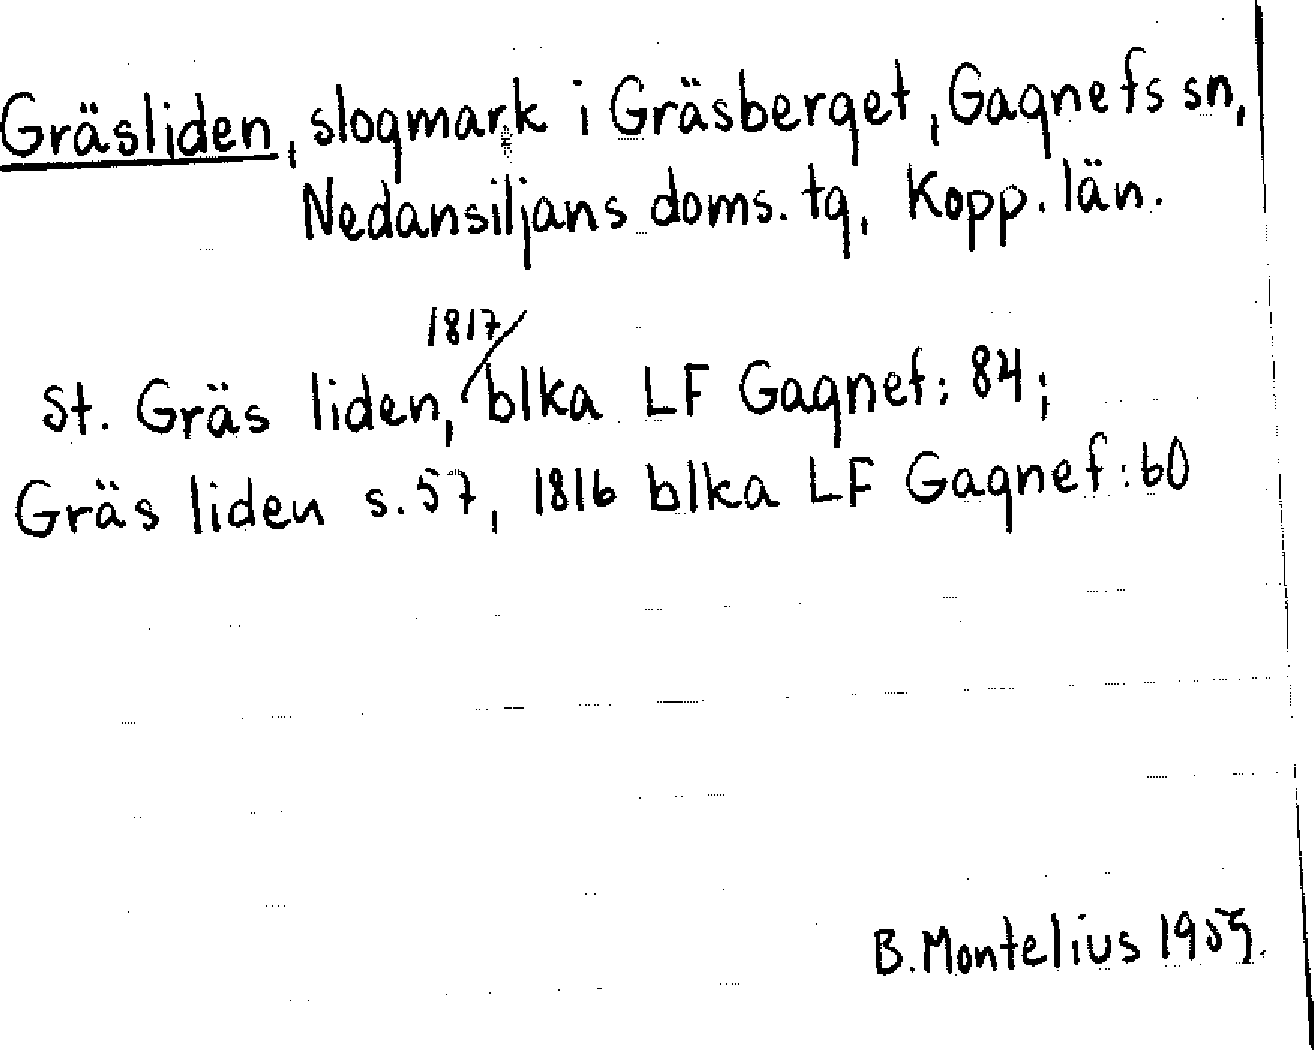 Gräsliden, slogmark i Gräsberget, Gagnefs sn,
Nedansiljans doms. tg, Kopp. län.
St. Gräs liden, 1817 blka LF Gagnef: 84;
Gräs liden s. 57, 1816 blka LF Gagnef: 60
B. Montelius 1955.